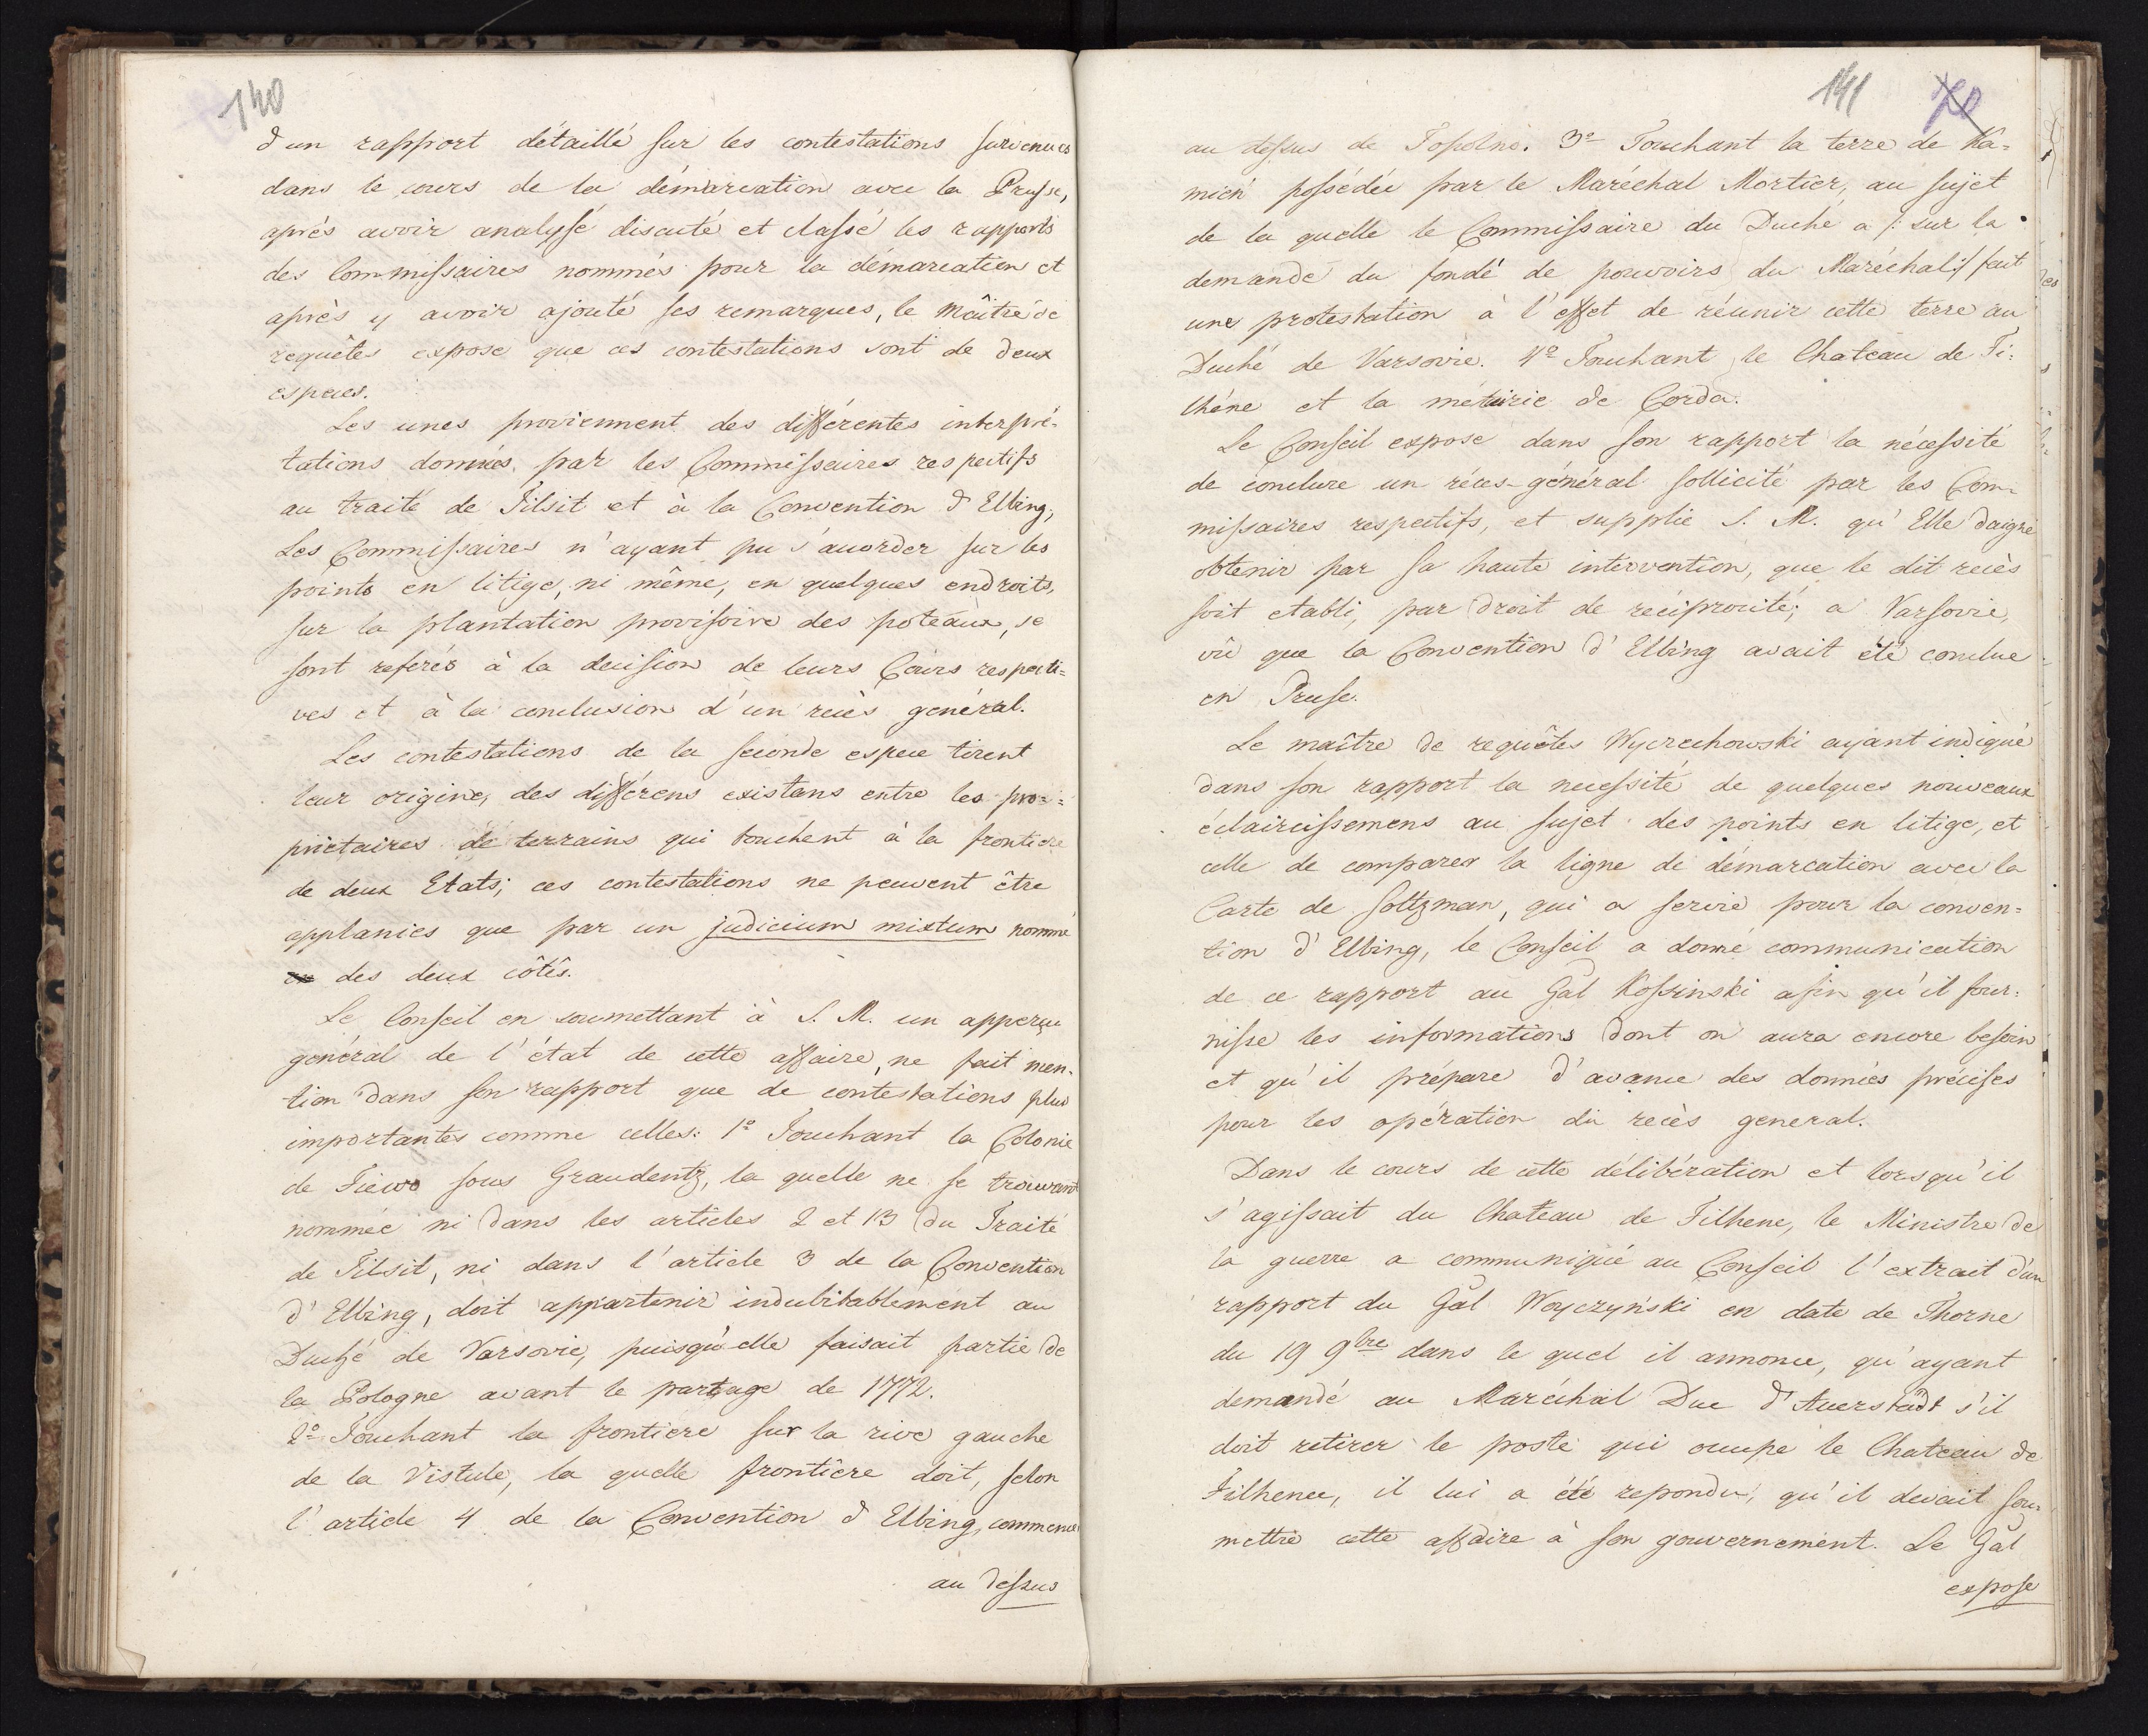 140
d'un rapport détaillé sur les contestations survenues
dans le cours de la démarcation avec la Prusse,
après avoir analysé discuté et classé les rapports
des Commissaires nommés pour la démarcation et
après y avoir ajouté ses remarques, le Maître de
requêtes expose que ces contestations sont de deux
especes.
Les unes proviennent des différentes interpré-
tations données par les Commissaires respectifs
au traité de Tilsit et à la Convention d'Elbing;
Les Commissaires n'ayant pu s'accorder sur les
points en litige, ni même, en quelques endroits,
sur la plantation provisoire des poteaux, se
sont referés à la decision de leurs Cours respecti=
ves et à la conclusion d'un recès general.
Les contestations de la seconde espece tirent
leur origine, des différens existans entre les pro=
priétaires de terrains qui touchent à la frontiere
de deux Etats; ces contestations ne peuvent être
applanies que par un judicium mixtum nommé
des deux côtés.
Le Conseil en soumettant à S. M. un apperçu
général de l'état de cette affaire, ne fait men-
tion dans son rapport que de contestations plus
importantes comme celles: 1º Touchant la Colonie
de Fiewo sous Graudentz, la quelle ne se trouvant
nommée ni dans les articles 2 et 13 du Traité
de Tilsit, ni dans l'article 3 de la Convention
d'Elbing, doit appartenir indubitablement au
Duché de Varsovie, puisqu'elle faisait partie de
la Pologne avant le partage de 1772.
2º Touchant la frontiere sur la rive gauche
de la Vistule, la quelle frontière doit, selon
l'article 4 de la Convention d'Elbing, commencer
au dessus
141
70
au dessus de Topolno. 3º Touchant la terre de Ka=
mień possédée par le Maréchal Mortier, au sujet
de la quelle le Commissaire du Duché a /: sur la
demande du fondé de pouvoirs du Maréchal :/ fait
une protestation à l'effet de réunir cette terre au
Duché de Varsovie. 4º Touchant le Chateau de Fi=
lhéne et la métairie de Corda.
Le Conseil expose dans son rapport la nécessité
de conclure un réces-général sollicité par les Com=
missaires respectifs, et supplie S. M. qu'Elle daigne
obtenir par sa haute intervention, que le dit recès
soit etabli, par droit de réciprocité; a Varsovie,
vû que la Convention d'Elbing avait été conclue
en Prusse.
Le maître de requêtes Wyczechowski ayant indiqué
dans son rapport la necessité de quelques nouveaux
éclaircissemens au sujet des points en litige, et
celle de comparer la ligne de démarcation avec la
Carte de Soltzman, qui a servie pour la conven=
tion d'Elbing, le Conseil a donné communication
de ce rapport au Gal Kossinski afin qu'il four=
nisse les informations dont on aura encore besoin
et qu'il prépare d'avance des données précises
pour les opération du recès general.
Dans le cours de cette délibération et lorsqu'il
s'agissait du Chateau de Filhene, le Ministre de
la guerre a communiqué au Conseil l'extrait d'un
rapport du Gal Woyczyński en date de Thorne
du 19 9bre dans le quel il annonce, qu'ayant
demandé au Maréchal Duc d'Auerstädt s'il
doit retirer le poste qui occupe le Chateau de
Filhenee, il lui a été repondu, qu'il devait sou=
mettre cette affaire à son gouvernement. Le Gal
expose